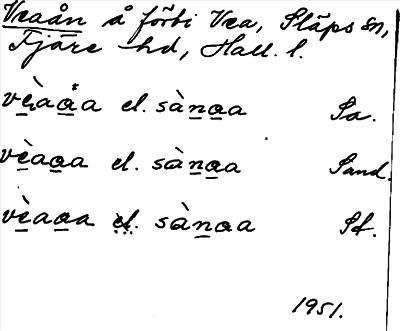 Veaån å förbi Vea, Släps sn,
Fjäre hd, Hall. l.
vèaåa el. sànaa Sa.
vèaaa el. sànaa Sand.
vèaaa el. sànaa Sf.
1951.